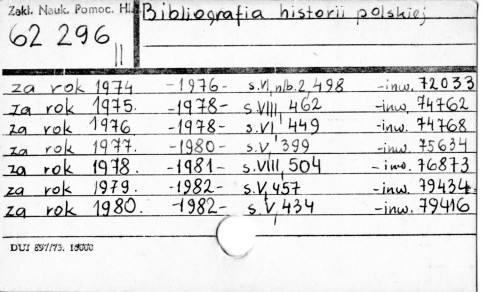 Zakł. Nauk. Pomoc. Hi
Bibliografia historii polskiej
62 296
II
za rok 1974 -1976- s.VI, nlb.2, 498 -inw. 72033
za rok 1975. -1978- s.VIII, 462 -inw. 74762
za rok 1976 -1978- s.VI, 449 -inw. 74768
za rok 1977. -1980- s.V, 399 -inw. 75634
za rok 1978. -1981- s.VIII, 504 -inw. 76873
za rok 1979. -1982- s.V, 457 -inw. 79434
za rok 1980. -1982- s.V, 434 -inw. 79416
DUJ 897/73.